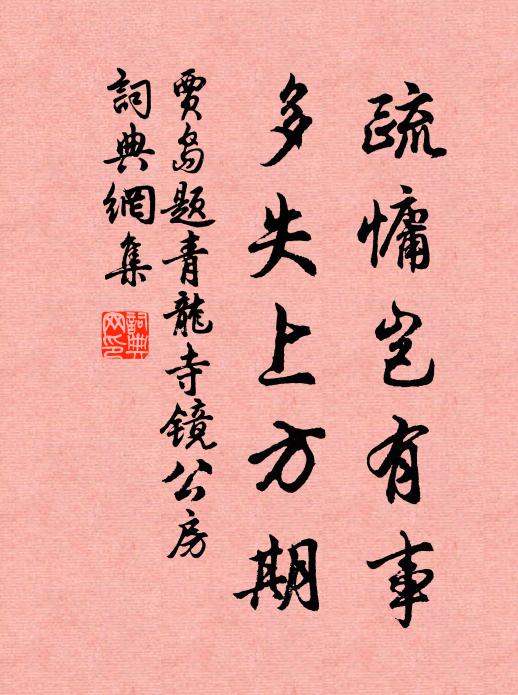 疏慵岂有事
多失上方期
賈島题青龍寺镜公房
詞典網集
詞典网印